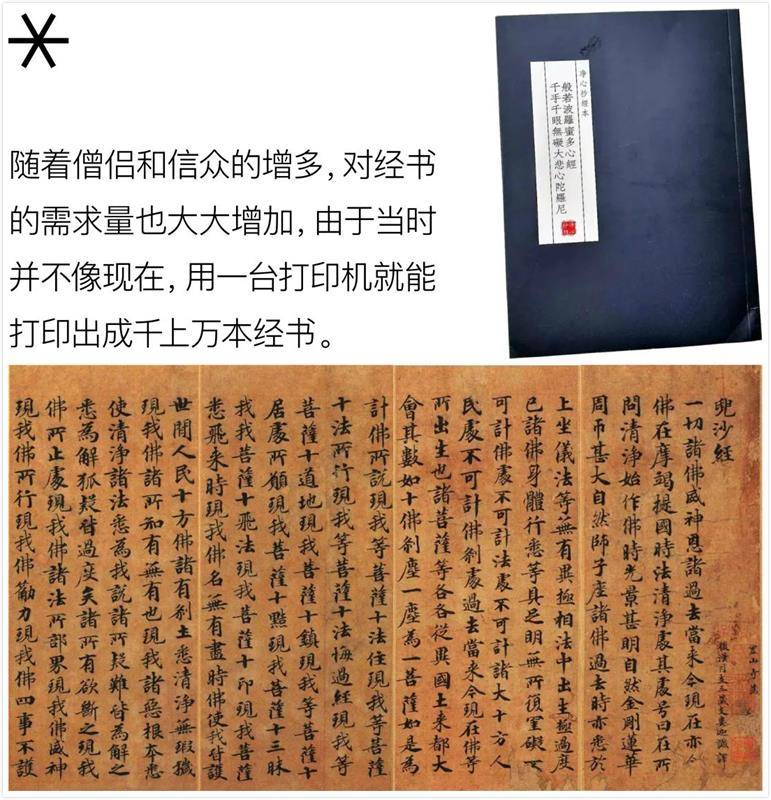 随着僧侣和信众的增多，对经书
的需求量也大大增加，由于当时
并不像现在，用一台打印机就能
打印出成千上万本经书。
净心抄經本
般若波羅蜜多心經
千手千眼無礙大悲心陀羅尼
兜沙経
後漢月支三藏支婁迦讖譯
一切諸佛威神恩諸過去當来今現在亦人
佛在摩竭提國時法清浄處其處号曰在所
問清浄始作佛時光景甚明自然金剛蓮華
周帀甚大自然師子座諸佛過去時亦悉於
上坐儀法等無有異極相法中出生極過度
已諸佛身體行悉等具足明無所復罣礙
可計佛處不可計法處不可計諸大十方人
民處不可計佛剎處過去當来今現在佛等
所出生也諸菩薩等各各從異國土来都大
會其數如十佛剎塵一塵為一菩薩如是為
計佛所說現我等菩薩十法住現我等菩薩
十法所行現我等菩薩十法悔過經現我等
菩薩十道地現我等菩薩十鎮現我等菩薩十
居處所願現我菩薩十黠現我菩薩十三昧
我我菩薩十飛法現我菩薩十印現我菩薩
悉飛来時現我佛名無有盡時佛使我皆護
世間人民十方佛諸有剎土悉清浄無瑕穢
現我佛諸所知有無有也現我諸惡根本悉
使清浄諸法悉為我說諸所疑難皆為解之
悉為解狐疑皆過度矣諸所有欲斷之現我
佛所止處現我佛諸法所部界現我佛威神
現我佛所行現我佛勢力現我佛四事不護